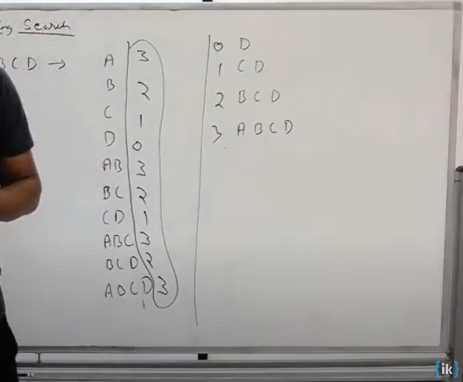 Search
BCD →
A 3
B 2
C 1
D 0
AB 3
BC 2
CD 1
ABC 3
BCD 2
ABCD 3
0 D
1 CD
2 BCD
3 ABCD
{ik}